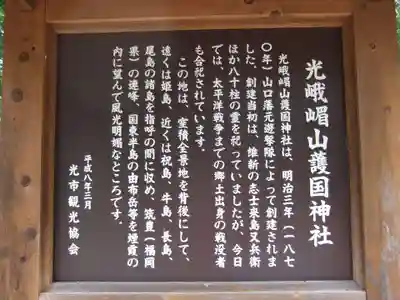 光峨嵋山護国神社
光峨嵋山護国神社は、明治三年(一八七
〇年)山口藩元遊撃隊によって創建されま
した。創建当初は、維新の志士来島又兵衛
ほか八十柱の霊を祀っていましたが、今日
では、太平洋戦争までの郷土出身の戦没者
も合祀されています。
この地は、室積全景地を背後にして、
遠くは姫島、近くは祝島、牛島、長島、
尾島の諸島を指呼の間に収め、筑豊(福岡
県)の連峰、国東半島の由布岳等を煙霞の
内に望んで風光明媚なところです。
平成八年三月
光市観光協会